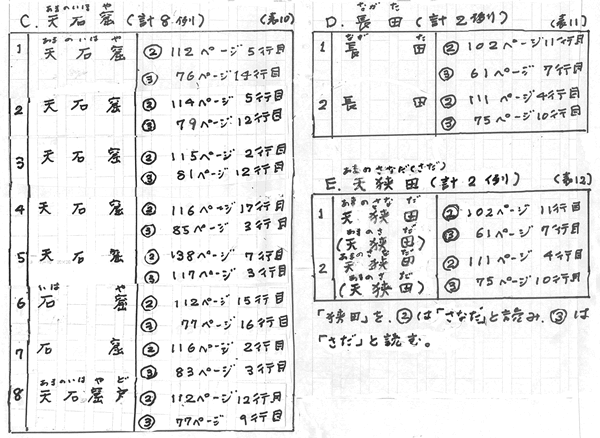 あまのいは や
C. 天石窟 (計8例) (表10)
あまのいは や
1 天石窟 ② 112ページ 5行目
③ 76ページ 14行目
2 天石窟 ② 114ページ 5行目
③ 79ページ 12行目
3 天石窟 ② 115ページ 2行目
③ 81ページ 12行目
4 天石窟 ② 116ページ 17行目
③ 85ページ 3行目
5 天石窟 ② 138ページ 7行目
③ 117ページ 3行目
いは や
6 石窟 ② 112ページ 15行目
③ 77ページ 16行目
7 石窟 ② 116ページ 2行目
③ 83ページ 3行目
あまのいは や ど
8 天石窟戸 ② 112ページ 12行目
③ 77ページ 9行目
なが た
D. 長田 (計2例) (表11)
なが た
1 長田 ② 102ページ 11行目
③ 61ページ 7行目
2 長田 ② 111ページ 4行目
③ 75ページ 10行目
あまのさなだ(さだ)
E. 天狭田 (計2例) (表12)
あまのさな だ
1 天狭田 ② 102ページ 11行目
あまのさ だ
(天狭田) ③ 61ページ 7行目
あまのさな だ
2 天狭田 ② 111ページ 4行目
あまのさ だ
(天狭田) ③ 75ページ 10行目
「狭田」を、②は「さなだ」と読み、③は
「さだ」と読む。